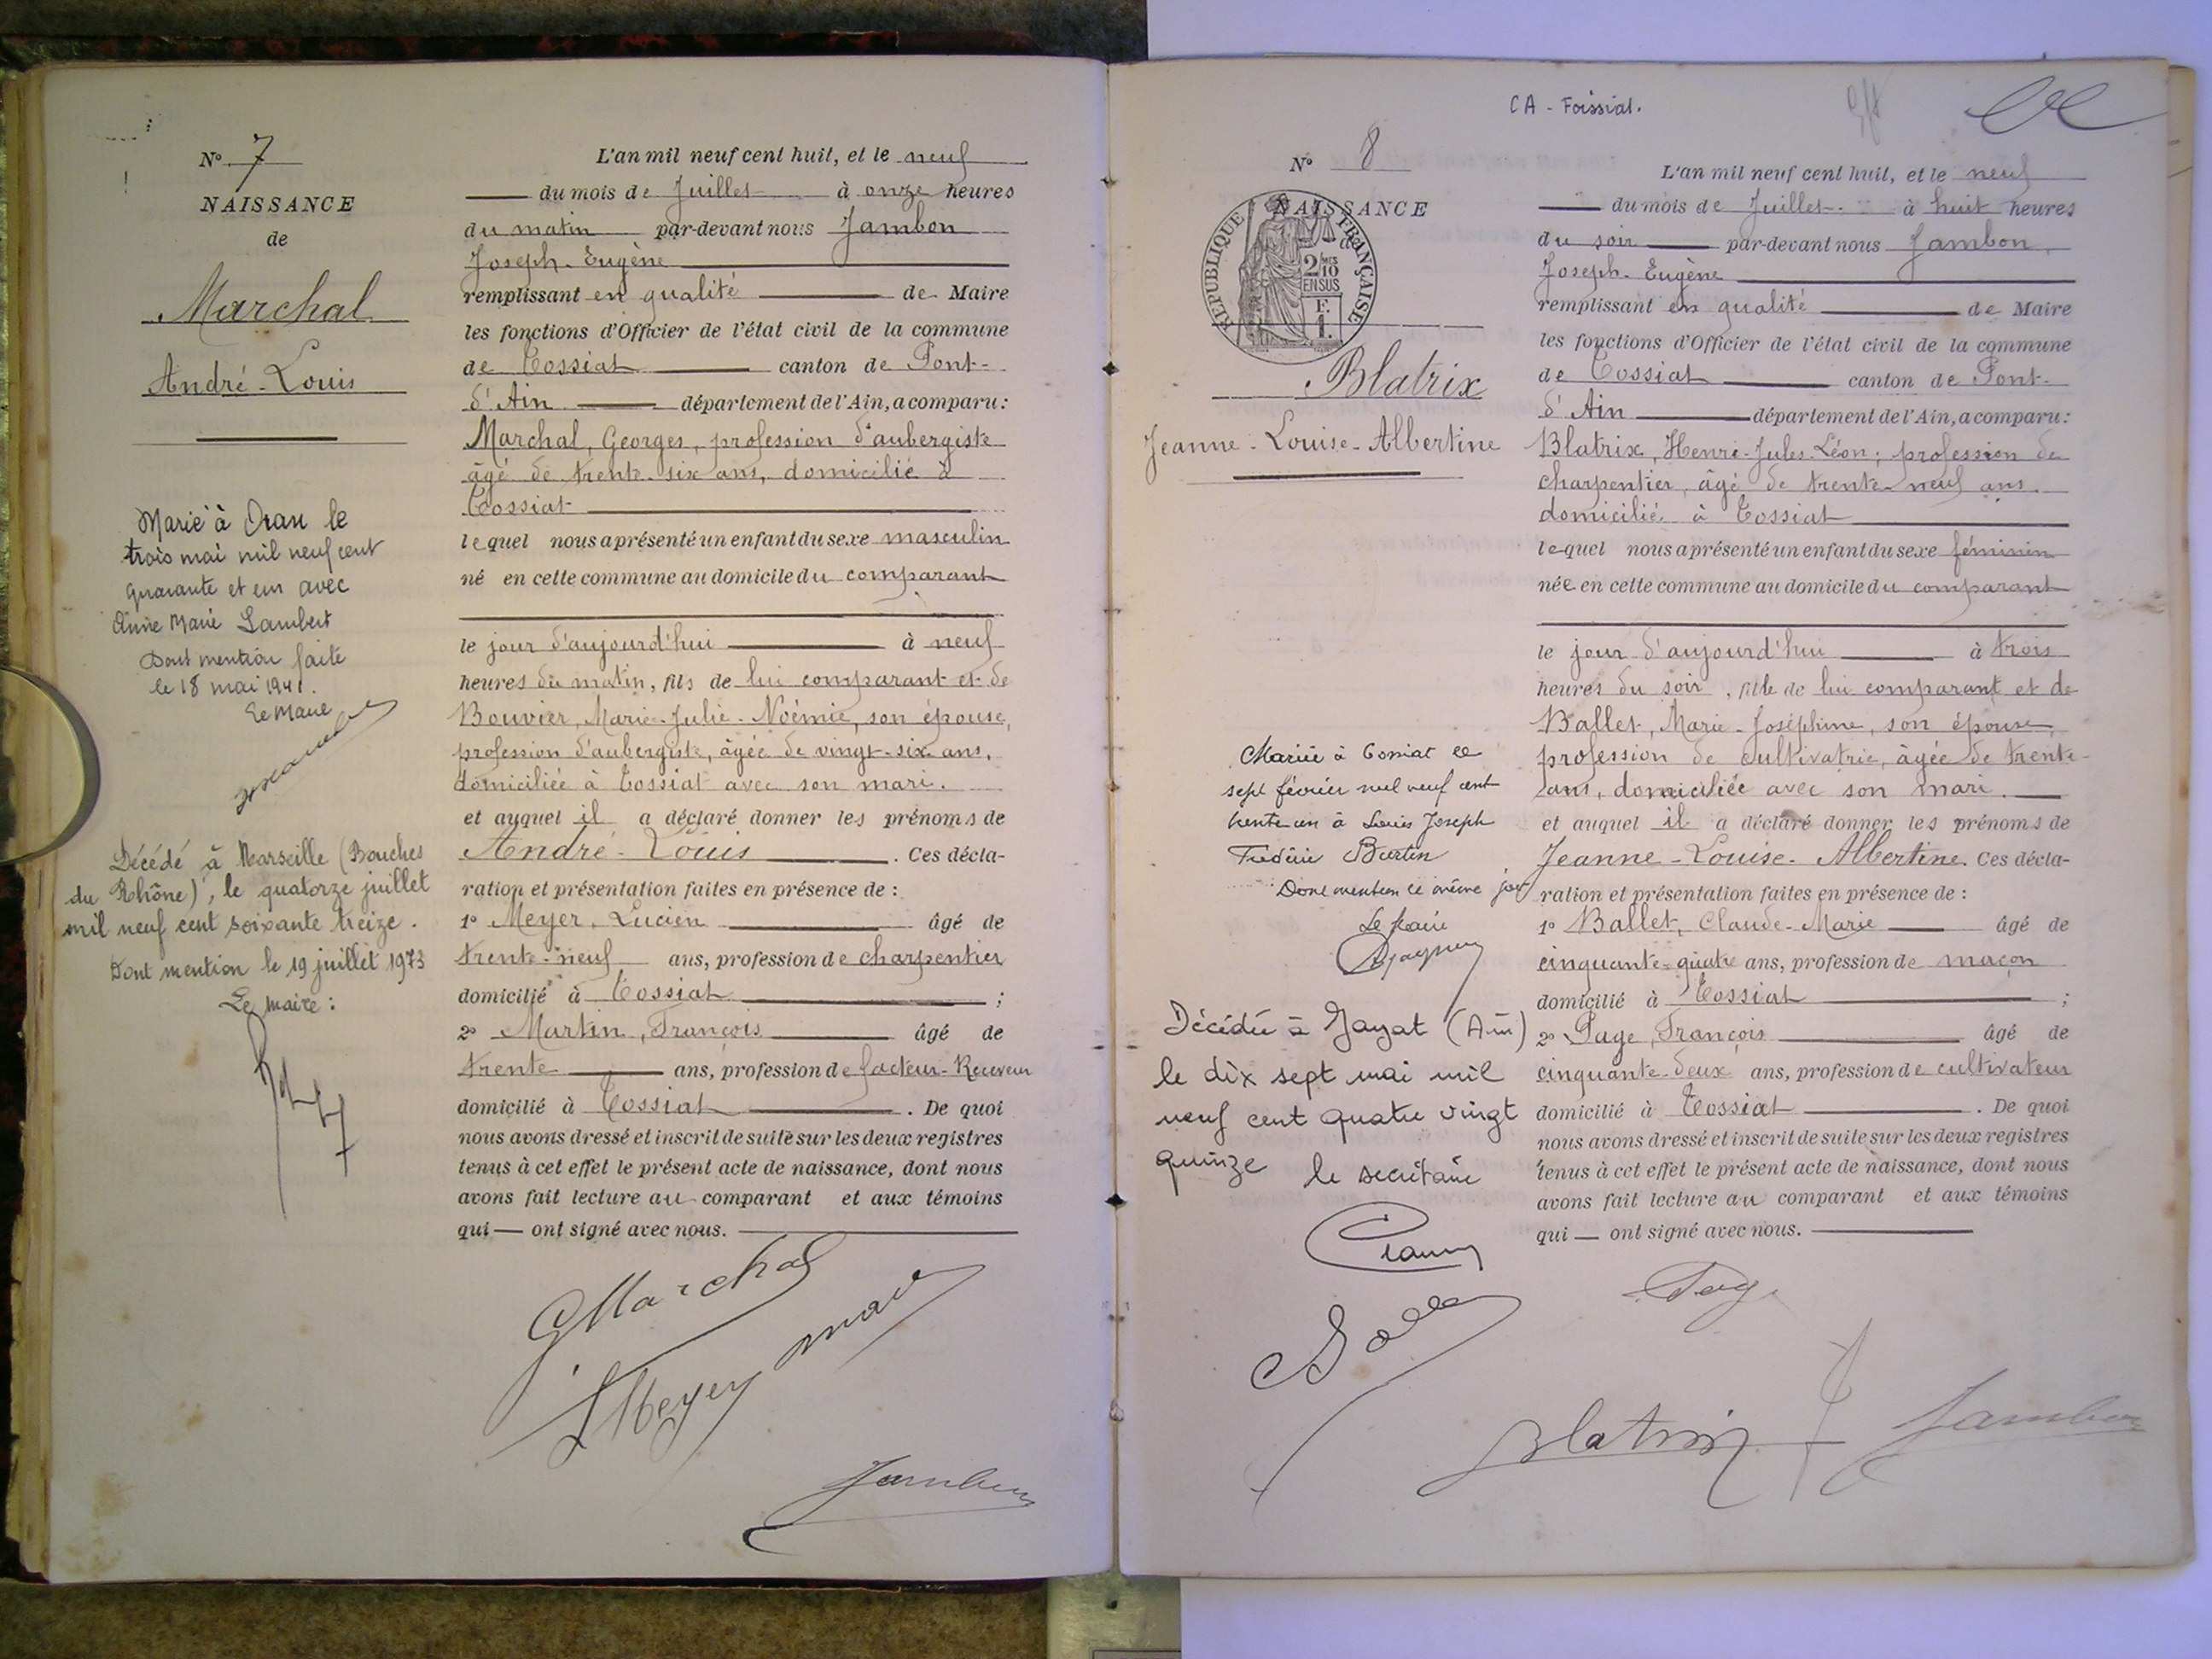 N° 7
NAISSANCE
de
Marchal
André-Louis
Marié à Oran le
trois mai mil neuf cent
quarante et un avec
Anne Marie Lambert
Dont mention faite
le 18 mai 1941.
Le Maire
Décédé à Marseille (Bouches
du Rhône), le quatorze juillet
mil neuf cent soixante treize.
Dont mention le 19 juillet 1973
Le maire :
L'an mil neuf cent huit, et le neuf
du mois de Juillet à onze heures
du matin par-devant nous Jambon
Joseph-Eugène
remplissant en qualité de Maire
les fonctions d'Officier de l'état civil de la commune
de Tossiat canton de Pont-
d'Ain département de l'Ain, a comparu :
Marchal, Georges, profession d'aubergiste
âgé de trente-six ans, domicilié à
Tossiat
lequel nous a présenté un enfant du sexe masculin
né en cette commune au domicile du comparant
le jour d'aujourd'hui à neuf
heures du matin, fils de lui comparant et de
Bouvier, Marie-Julie-Noémie, son épouse,
profession d'aubergiste, âgée de vingt-six ans,
domiciliée à Tossiat avec son mari.
et auquel il a déclaré donner les prénoms de
André-Louis. Ces décla-
ration et présentation faites en présence de :
1° Meyer, Lucien âgé de
trente-neuf ans, profession de charpentier
domicilié à Tossiat ;
2° Martin, François âgé de
trente ans, profession de facteur-Receveur
domicilié à Tossiat. De quoi
nous avons dressé et inscrit de suite sur les deux registres
tenus à cet effet le présent acte de naissance, dont nous
avons fait lecture au comparant et aux témoins
qui — ont signé avec nous.
GMarchal
LMeyer
Jambon
CA - Foissiat.
N° 8
NAISSANCE
de
REPUBLIQUE FRANÇAISE
2/10 MES
EN SUS
Blatrix
Jeanne-Louise-Albertine
Mariée à Tossiat le
sept février mil neuf cent
trente un à Louis Joseph
Frédéric Burtin
Dont mention ce même jour
Le Maire
Décédée à Jayat (Ain)
le dix sept mai mil
neuf cent quatre vingt
quinze le secrétaire
L'an mil neuf cent huit, et le neuf
du mois de Juillet à huit heures
du soir par-devant nous Jambon
Joseph-Eugène
remplissant en qualité de Maire
les fonctions d'Officier de l'état civil de la commune
de Tossiat canton de Pont-
d'Ain département de l'Ain, a comparu :
Blatrix, Henri-Jules-Léon, profession de
charpentier, âgé de trente-neuf ans
domicilié à Tossiat
lequel nous a présenté un enfant du sexe féminin
née en cette commune au domicile du comparant
le jour d'aujourd'hui à trois
heures du soir, fille de lui comparant et de
Ballet, Marie-Joséphine, son épouse,
profession de cultivatrice, âgée de trente-
ans, domiciliée avec son mari.
et auquel il a déclaré donner les prénoms de
Jeanne-Louise-Albertine. Ces décla-
ration et présentation faites en présence de :
1° Ballet, Claude-Marie âgé de
cinquante-quatre ans, profession de maçon
domicilié à Tossiat ;
2° Page, François âgé de
cinquante-deux ans, profession de cultivateur
domicilié à Tossiat. De quoi
nous avons dressé et inscrit de suite sur les deux registres
tenus à cet effet le présent acte de naissance, dont nous
avons fait lecture au comparant et aux témoins
qui — ont signé avec nous.
Page
Blatrix
Jambon